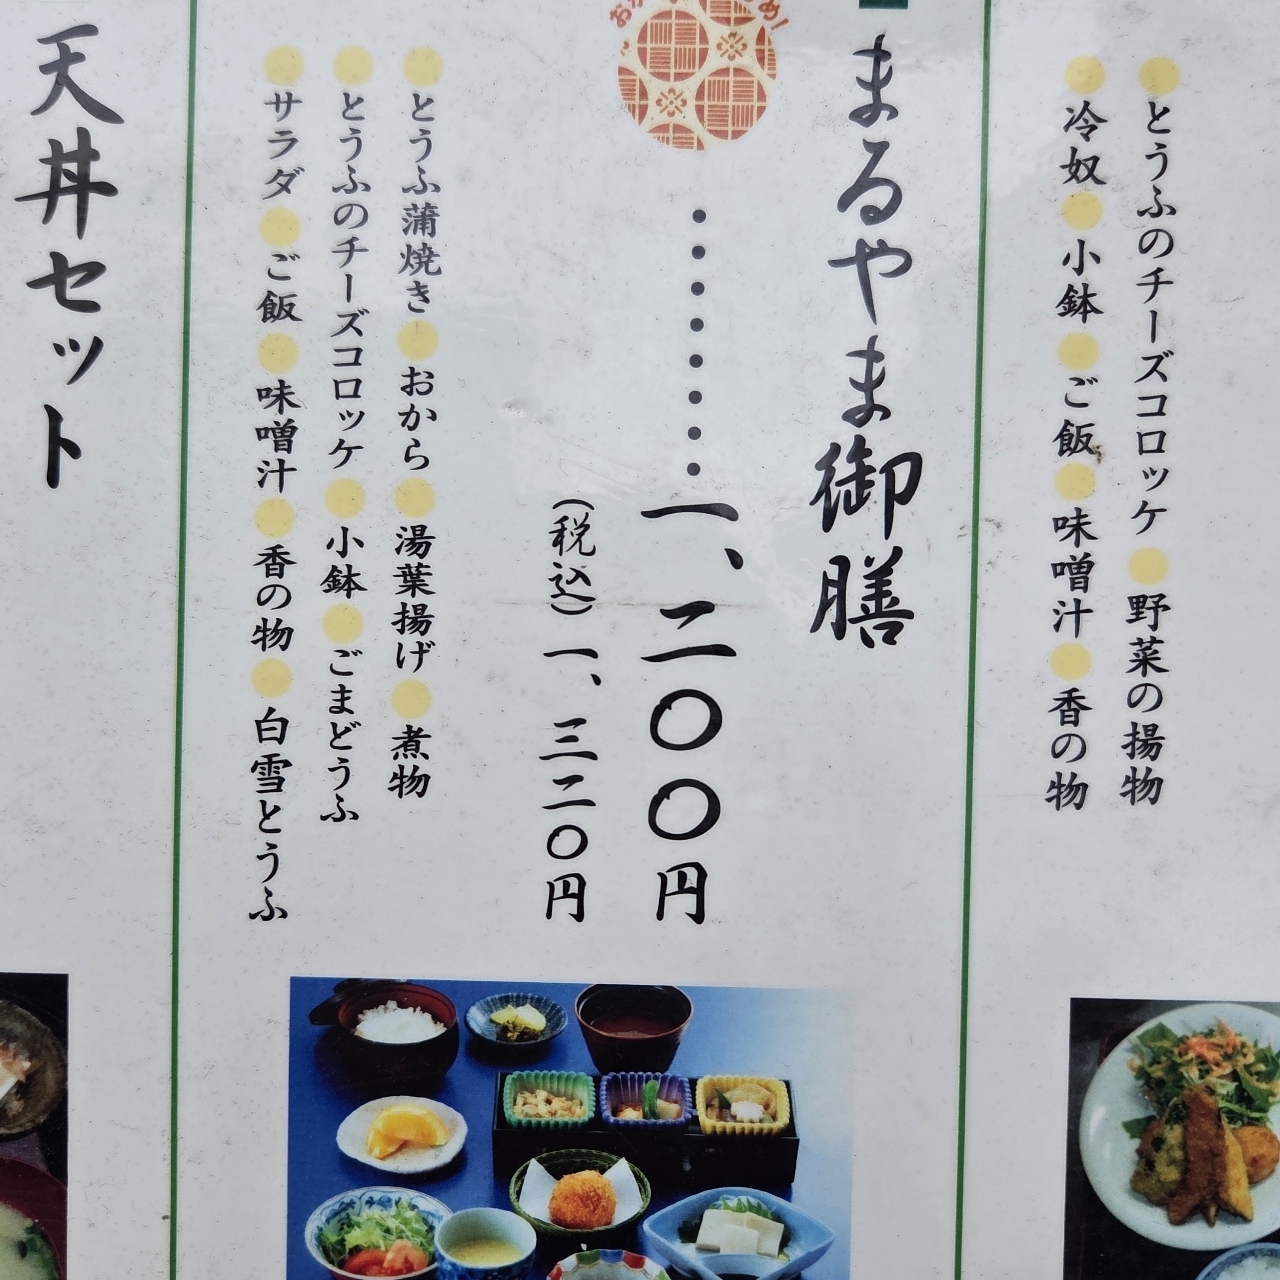 とうふのチーズコロッケ●野菜の揚物
冷奴●小鉢●ご飯●味噌汁●香の物
まるやま御膳
・・・・・・・・一、二〇〇円
(税込)一、三二〇円
とうふ蒲焼き●おから●湯葉揚げ●煮物
とうふのチーズコロッケ●小鉢●ごまどうふ
サラダ●ご飯●味噌汁●香の物●白雪とうふ
天丼セット